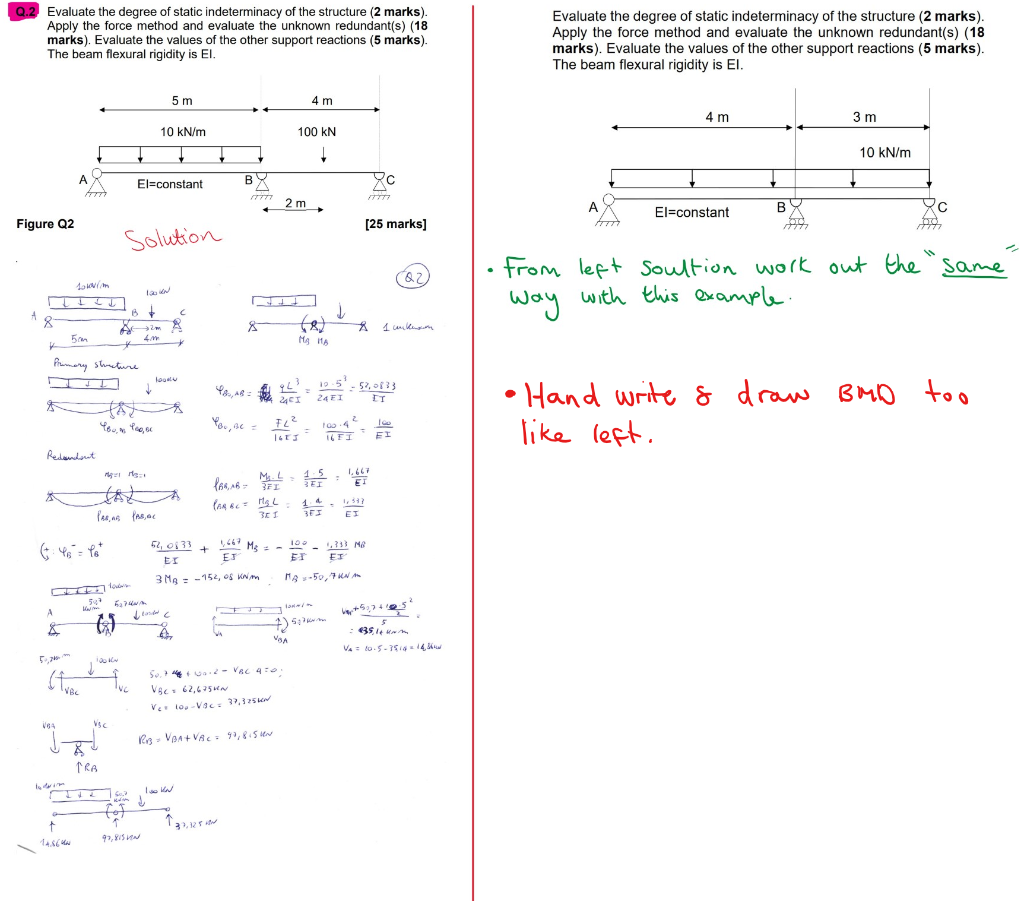 Q.2 Evaluate the degree of static indeterminacy of the structure (2 marks).
Apply the force method and evaluate the unknown redundant(s) (18
marks). Evaluate the values of the other support reactions (5 marks).
The beam flexural rigidity is EI.
5 m
4 m
10 kN/m
100 kN
A
EI=constant
B
C
2 m
Figure Q2
[25 marks]
Solution
Q2
10kN/m
100 kN
A
B
C
2m
5m
4m
MB MB
1 unknown
Primary structure
100kN
φB0,AB = qL³/24EI = 10·5³/24EI = 52,0833/EI
φB0,BC = FL²/16EI = 100·4²/16EI = 100/EI
Redundant
MB=1 MB=1
MB·L/3EI = 1·5/3EI = 1,667/EI
MB L/3EI = 1·4/3EI = 1,333/EI
φB⁻ = φB⁺
52,0833/EI + 1,667/EI MB = - 100/EI - 1,333/EI MB
3 MB = -152,08 kNm
MB = -50,7 kNm
10kN/m
A
C
VBA
VA = 10·5-35,14 = 14,86kN
100kN
VBC
VC
VBC = 62,675kN
VC = 100-VBC = 37,325kN
VBA
VBC
RB
RB = VBA+VBC = 97,815kN
10kN/m
100 kN
14,86kN
97,815kN
37,325kN
Evaluate the degree of static indeterminacy of the structure (2 marks).
Apply the force method and evaluate the unknown redundant(s) (18
marks). Evaluate the values of the other support reactions (5 marks).
The beam flexural rigidity is EI.
4 m
3 m
10 kN/m
A
EI=constant
B
C
• From left Soultion work out the "same"
way with this example.
• Hand write & draw BMD too
like left.